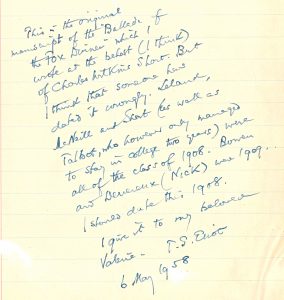 This is the original
manuscript of the "Ballade of
the Fox Dinner" which I
wrote at the behest (I think)
of Charles Short. But
I think that someone has
dated it wrongly. Leland,
McNeill and Short (as well as
Talbot, who however only managed
to stay in college two years) were
all of the class of 1908. Bowen
and (Nick) was 1909...
I should date this 1908.
I give it to my beloved
Valerie - T.S. Eliot
6 May 1958